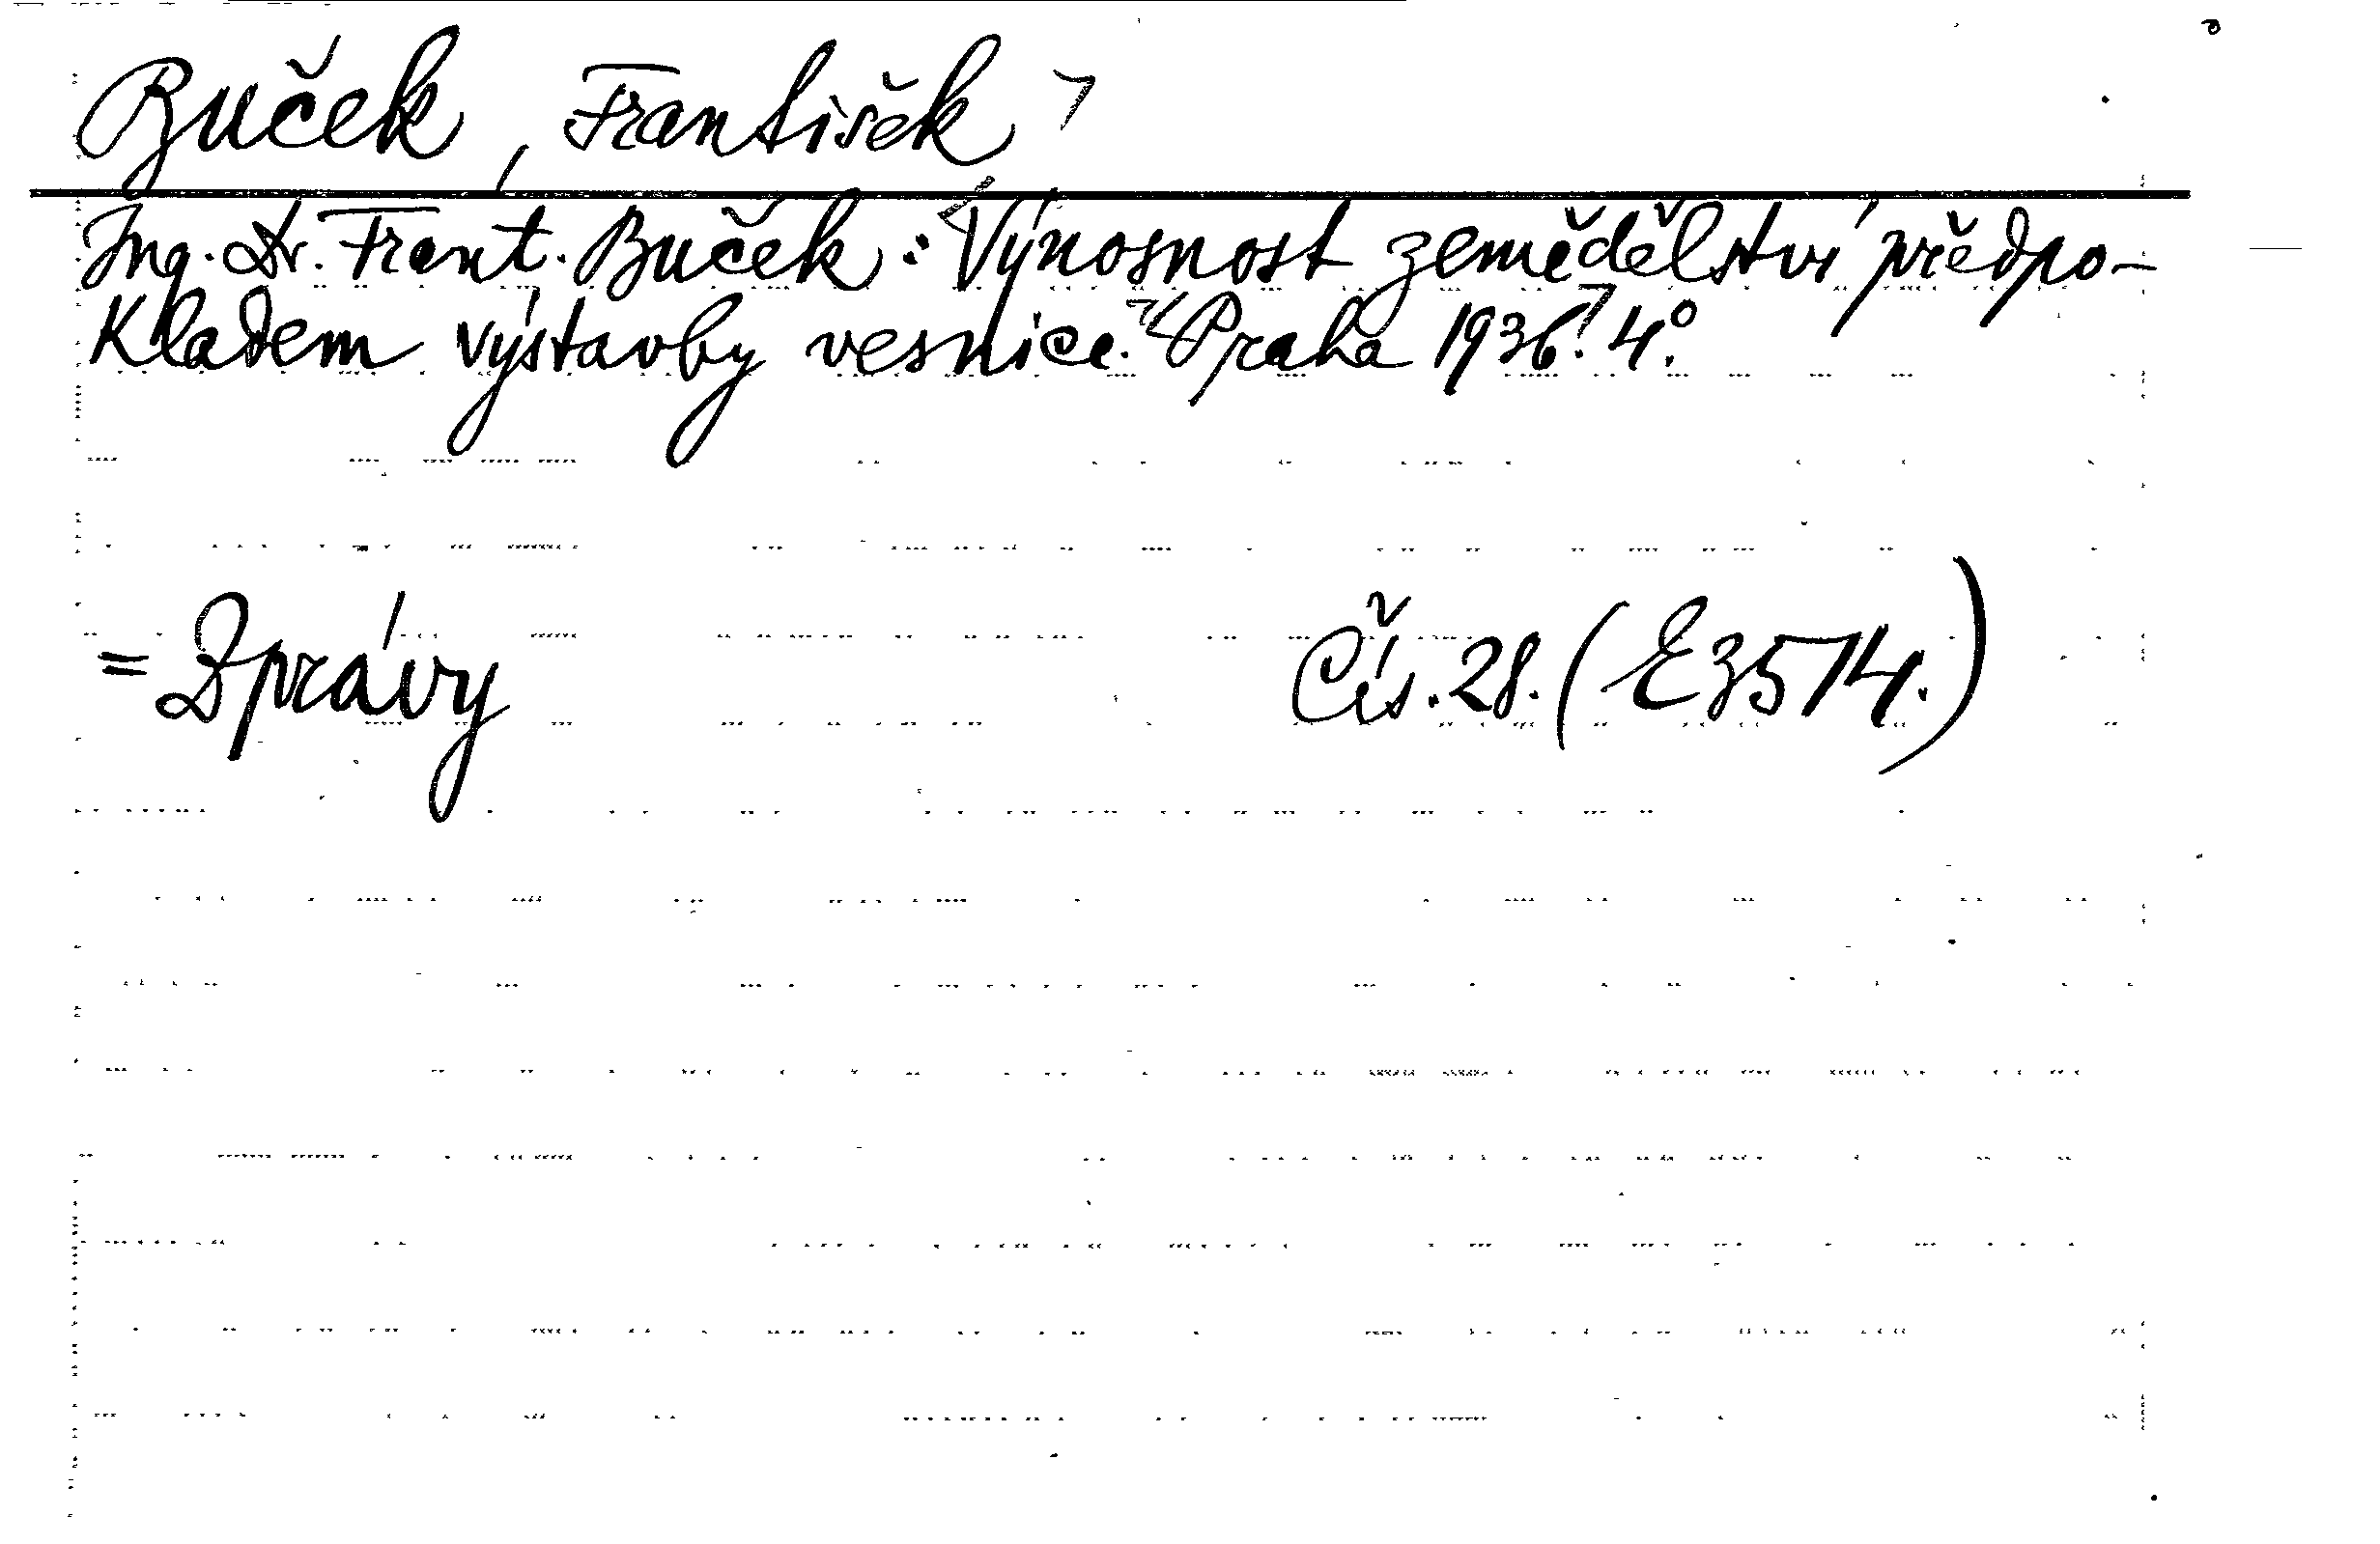 Buček, František
Ing. Dr. Frant. Buček: Výnosnost zemědělství předpo-
kladem výstavby vesnice. Praha 1936. 4°.
= Zprávy Čís. 28. (E 3574.)